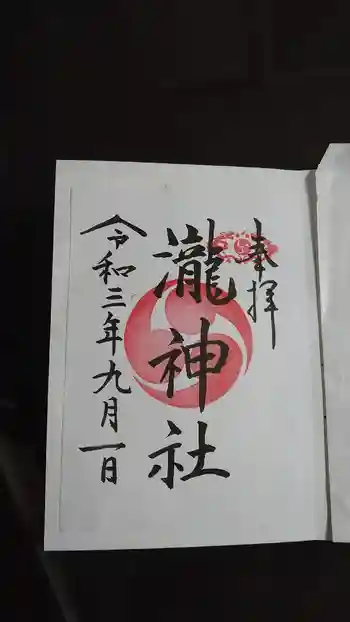 奉拝
瀧神社
令和三年九月一日